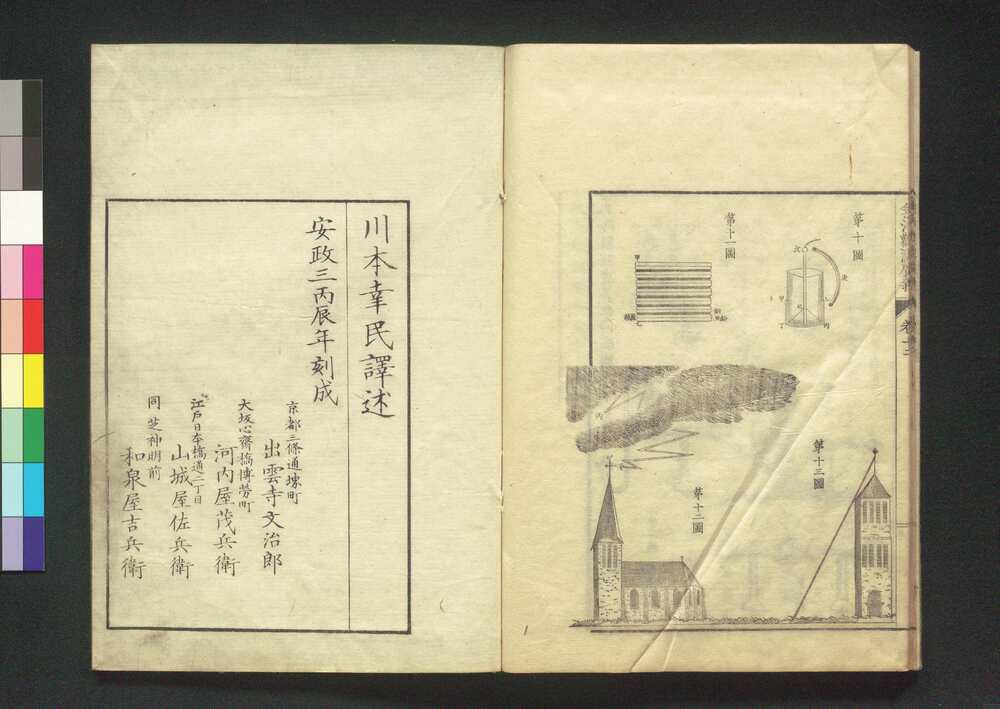 第十圖
丙
丁
甲
第十一圖
甲
乙
第十三圖
第十二圖
川本幸民譯述
安政三丙辰年刻成
京都三條通堺町
出雲寺文治郎
大坂心齋橋博勞町
河内屋茂兵衛
江戸日本橋通二丁目
山城屋佐兵衛
同芝神明前
和泉屋吉兵衛